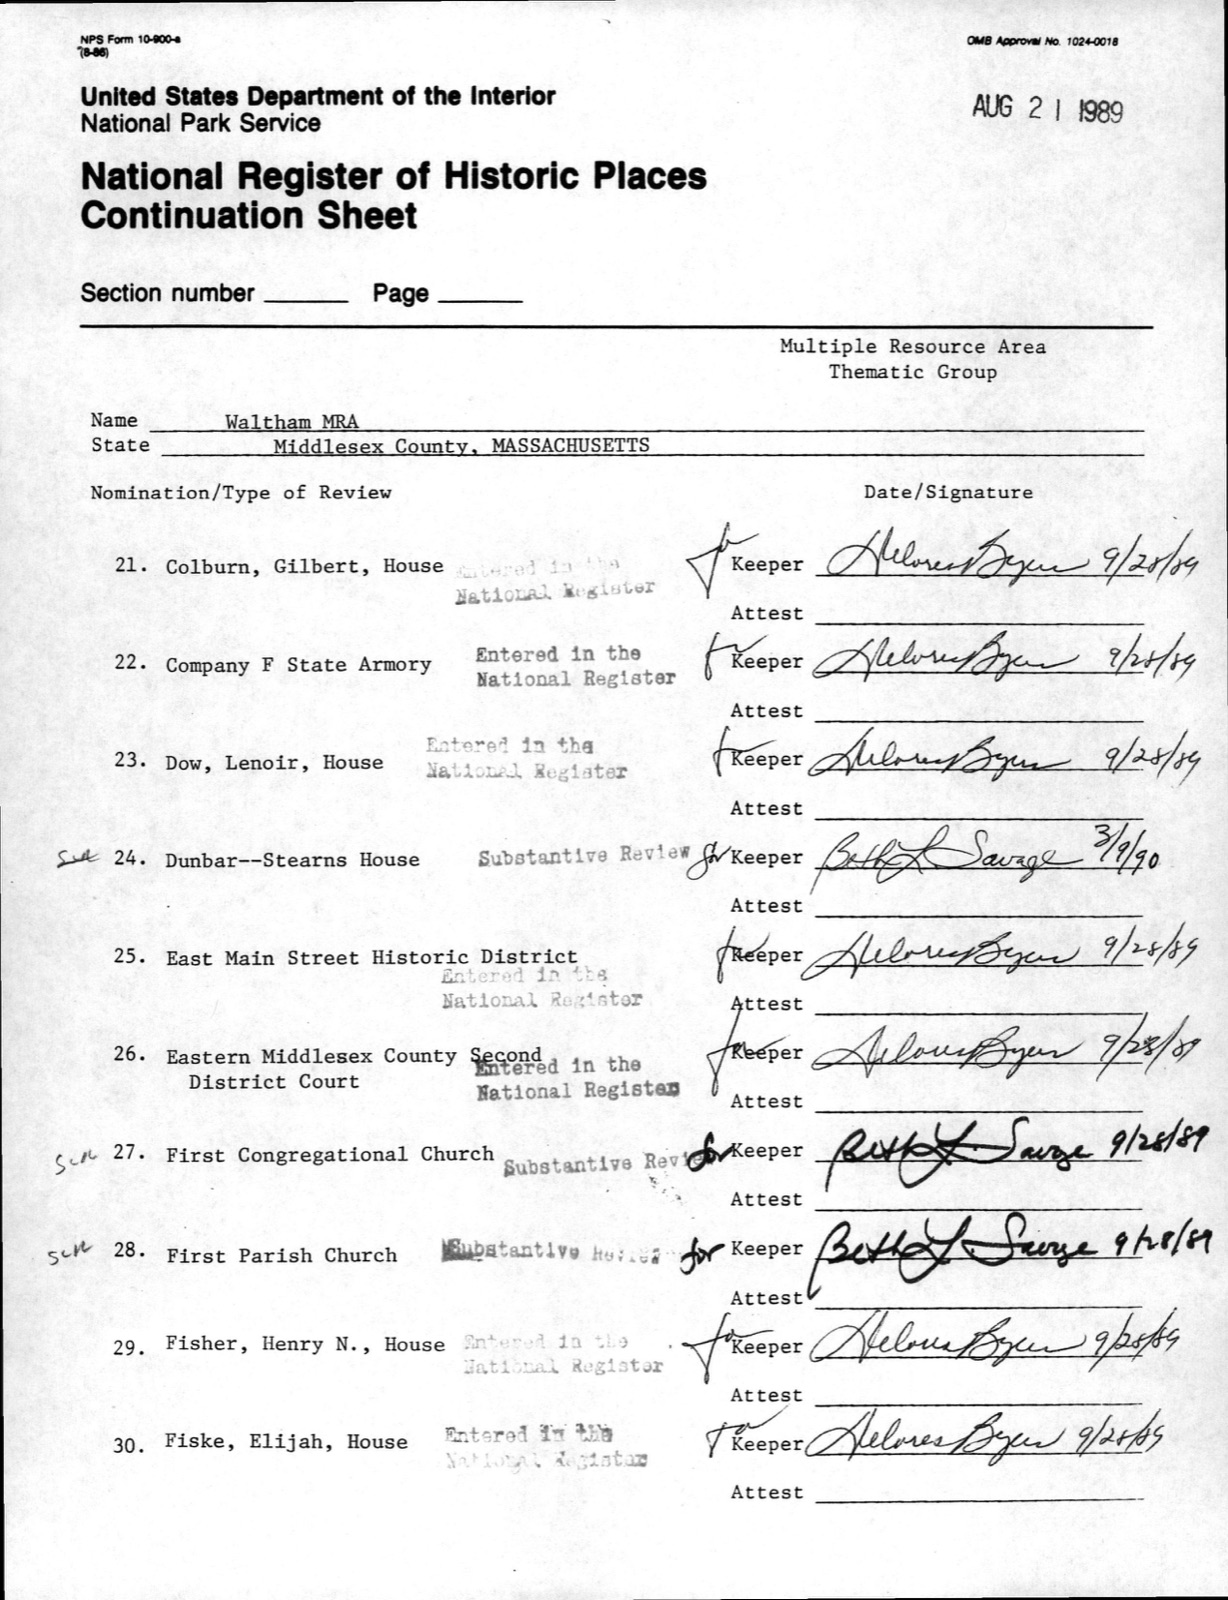 NPS Form 10-900-a
(8-86)
OMB Approval No. 1024-0018
United States Department of the Interior
National Park Service
AUG 21 1989
National Register of Historic Places
Continuation Sheet
Section number ______ Page ______
Multiple Resource Area
Thematic Group
Name Waltham MRA
State Middlesex County, MASSACHUSETTS
Nomination/Type of Review Date/Signature
21. Colburn, Gilbert, House Entered in the National Register for Keeper Delores Byers 9/28/89
Attest
22. Company F State Armory Entered in the National Register for Keeper Delores Byers 9/28/89
Attest
23. Dow, Lenoir, House Entered in the National Register for Keeper Delores Byers 9/28/89
Attest
24. Dunbar--Stearns House Substantive Review for Keeper Beth L Savage 3/9/90
Attest
25. East Main Street Historic District Entered in the National Register for Keeper Delores Byers 9/28/89
Attest
26. Eastern Middlesex County Second District Court Entered in the National Register for Keeper Delores Byers 9/28/89
Attest
27. First Congregational Church Substantive Review for Keeper Beth L. Savage 9/28/89
Attest
28. First Parish Church Substantive Review for Keeper Beth L. Savage 9/28/89
Attest
29. Fisher, Henry N., House Entered in the National Register for Keeper Delores Byers 9/28/89
Attest
30. Fiske, Elijah, House Entered in the National Register for Keeper Delores Byers 9/28/89
Attest